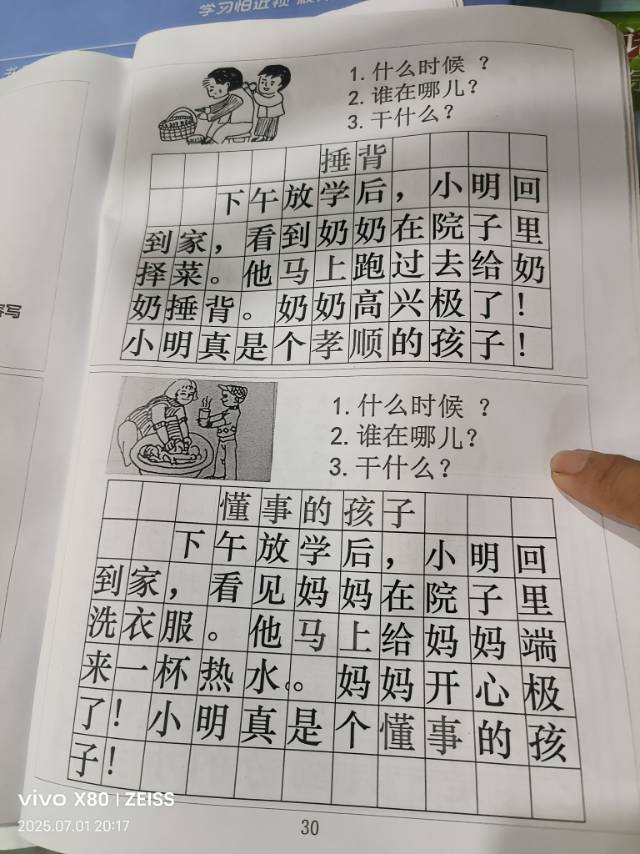 学习怕近视
1. 什么时候？
2. 谁在哪儿？
3. 干什么？
捶背
下午放学后，小明回
到家，看到奶奶在院子里
择菜。他马上跑过去给奶
奶捶背。奶奶高兴极了！
小明真是个孝顺的孩子！
1. 什么时候？
2. 谁在哪儿？
3. 干什么？
懂事的孩子
下午放学后，小明回
到家，看见妈妈在院子里
洗衣服。他马上给妈妈端
来一杯热水。妈妈开心极
了！小明真是个懂事的孩
子！
30
vivo X80 | ZEISS
2025.07.01 20:17